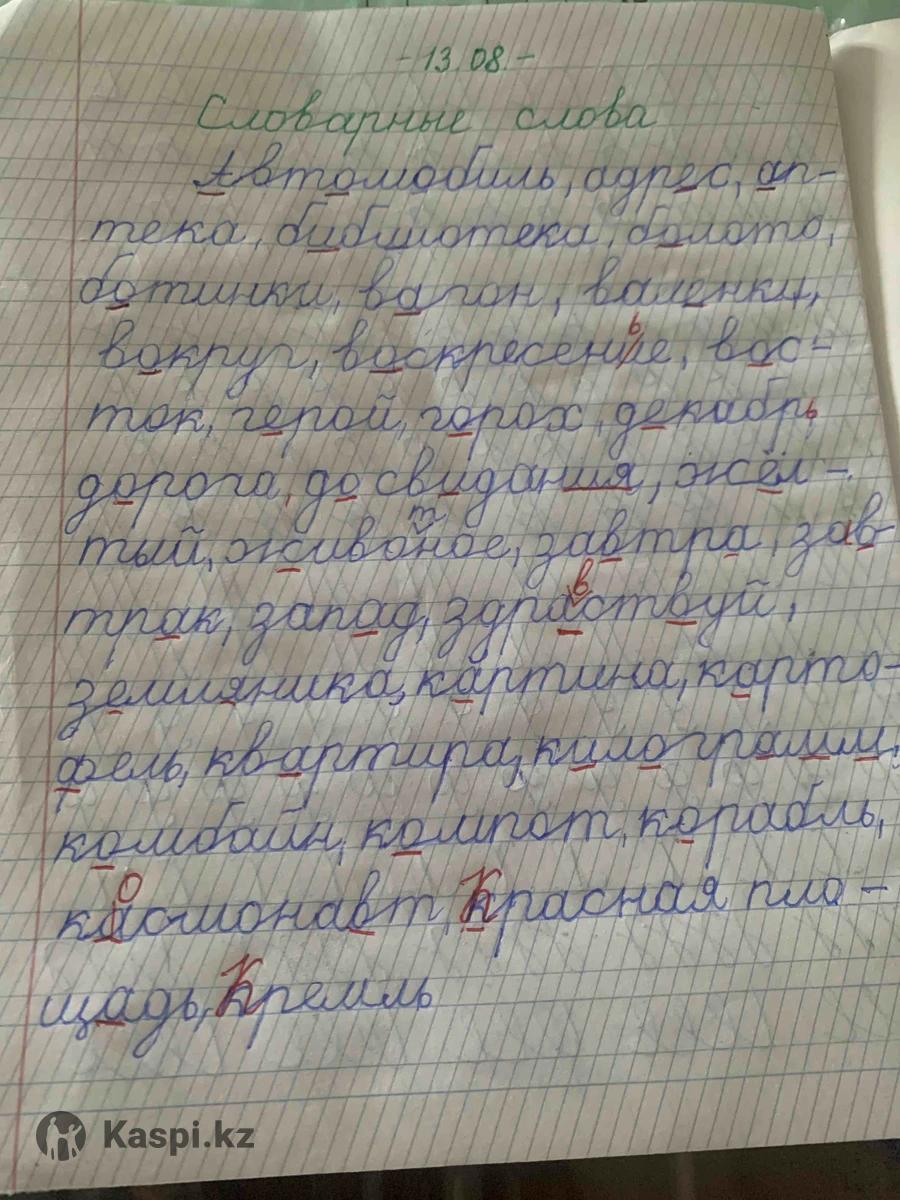 - 13.08. -
Словарные слова
Автомобиль, адрес, ап-
тека, библиотека, болото,
ботинки, вагон, валенки,
вокруг, воскресенье, вос-
ток, герой, горох, декабрь,
дорога, до свидания, жёл-
тый, живоное, завтра, зав-
т
трак, запад, здраствуй,
в
земляника, картина, карто-
фель, квартира, килограмм,
комбайн, компот, корабль,
касмонавт, Красная пло-
о
щадь, Кремль
Kaspi.kz